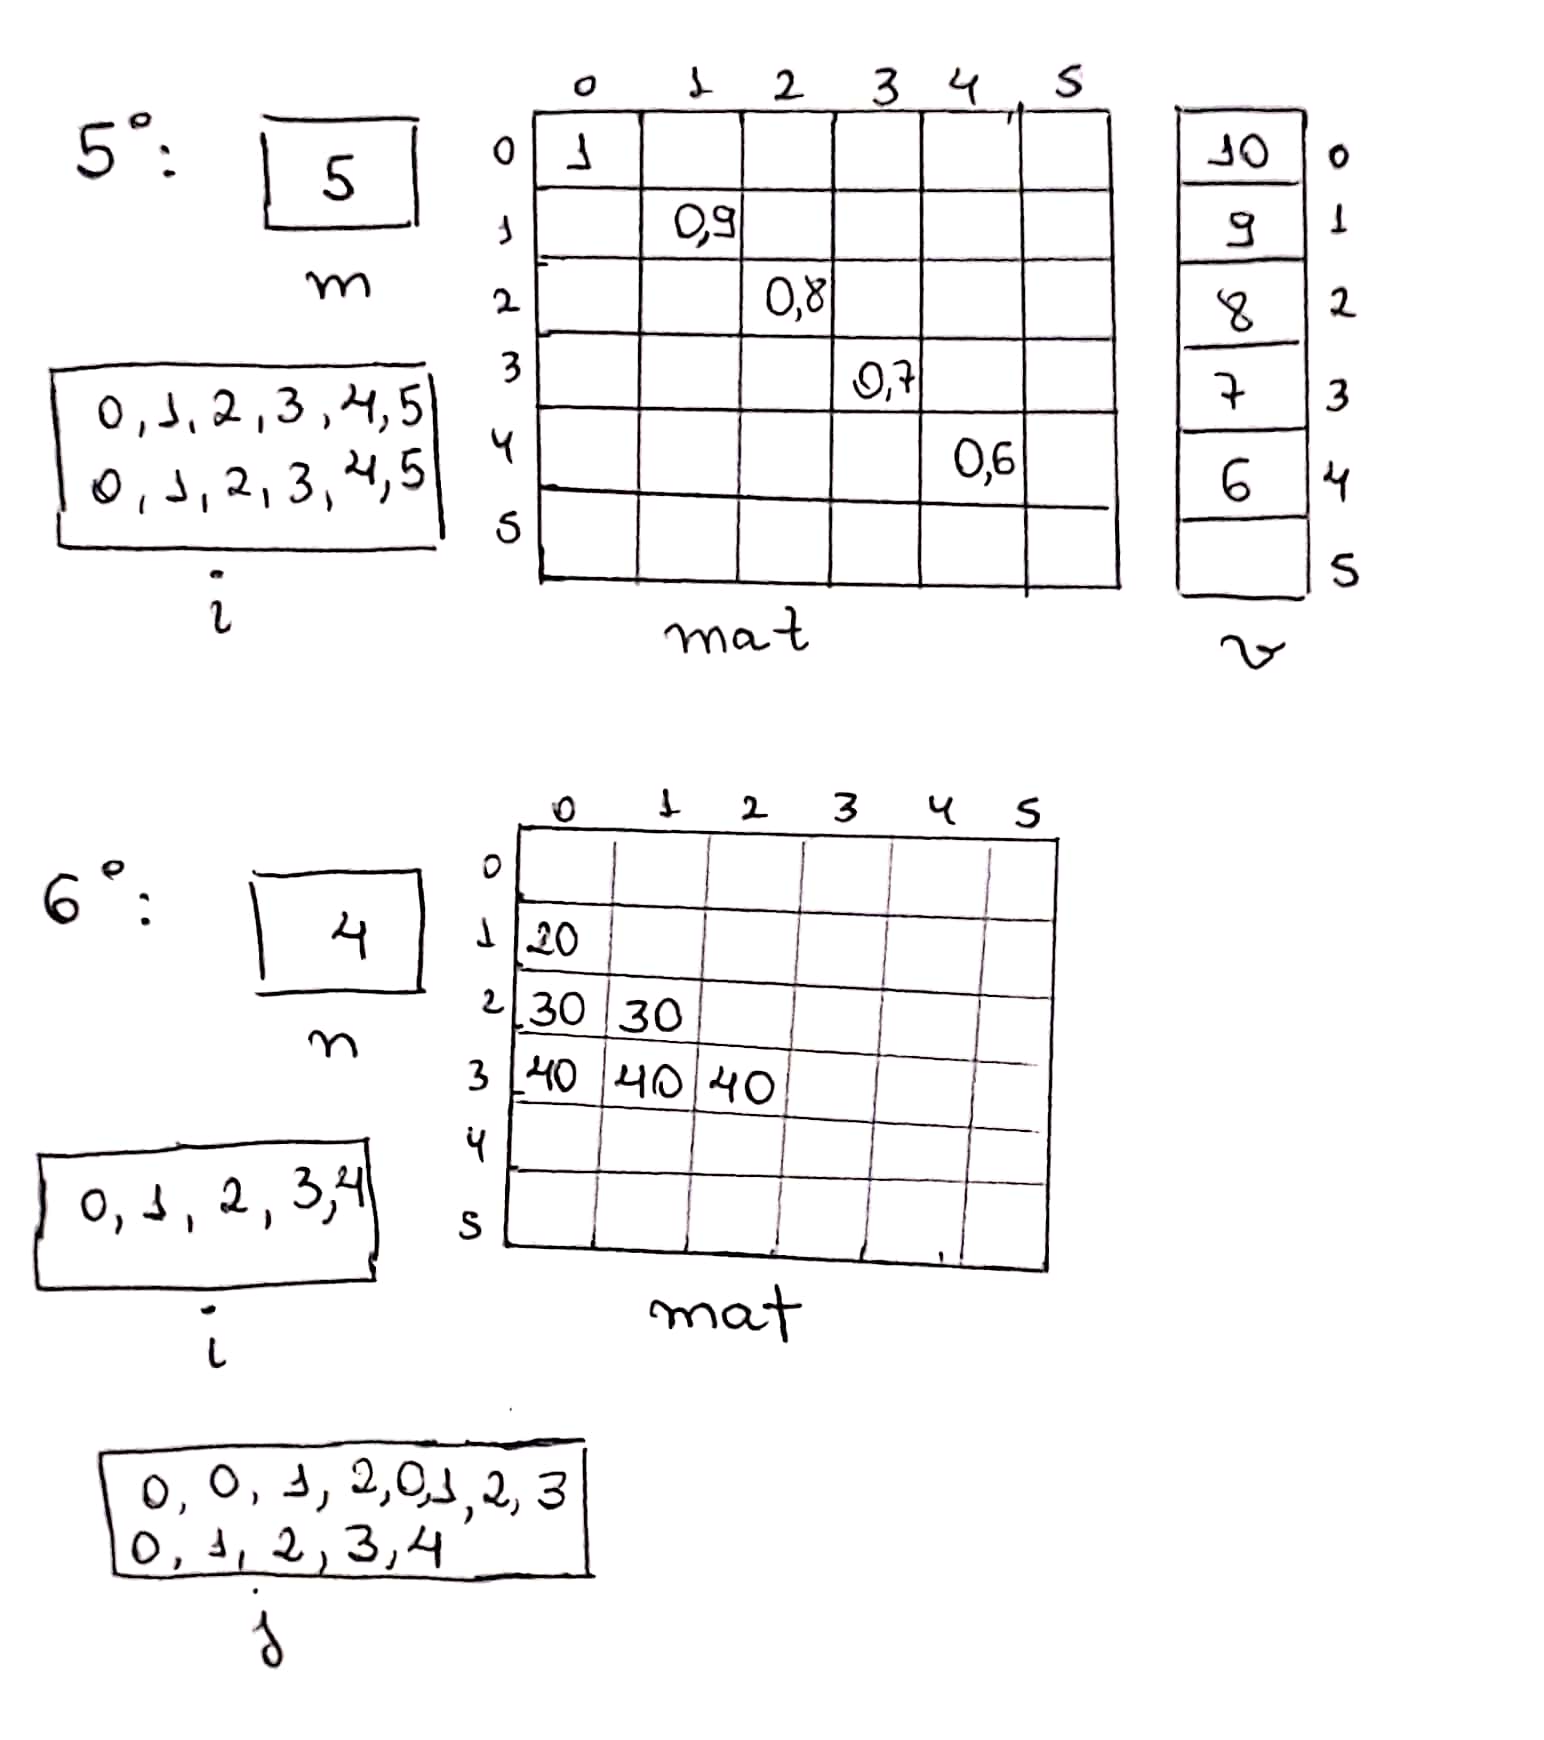 5º:
5
m
0, 1, 2, 3, 4, 5
0, 1, 2, 3, 4, 5
i
0 1 2 3 4 5
0 1
1 0,9
2 0,8
3 0,7
4 0,6
5
mat
10 0
9 1
8 2
7 3
6 4
5
v
6º:
4
n
0, 1, 2, 3, 4
i
0 1 2 3 4 5
0
1 20
2 30 30
3 40 40 40
4
5
mat
0, 0, 1, 2, 0, 1, 2, 3
0, 1, 2, 3, 4
j